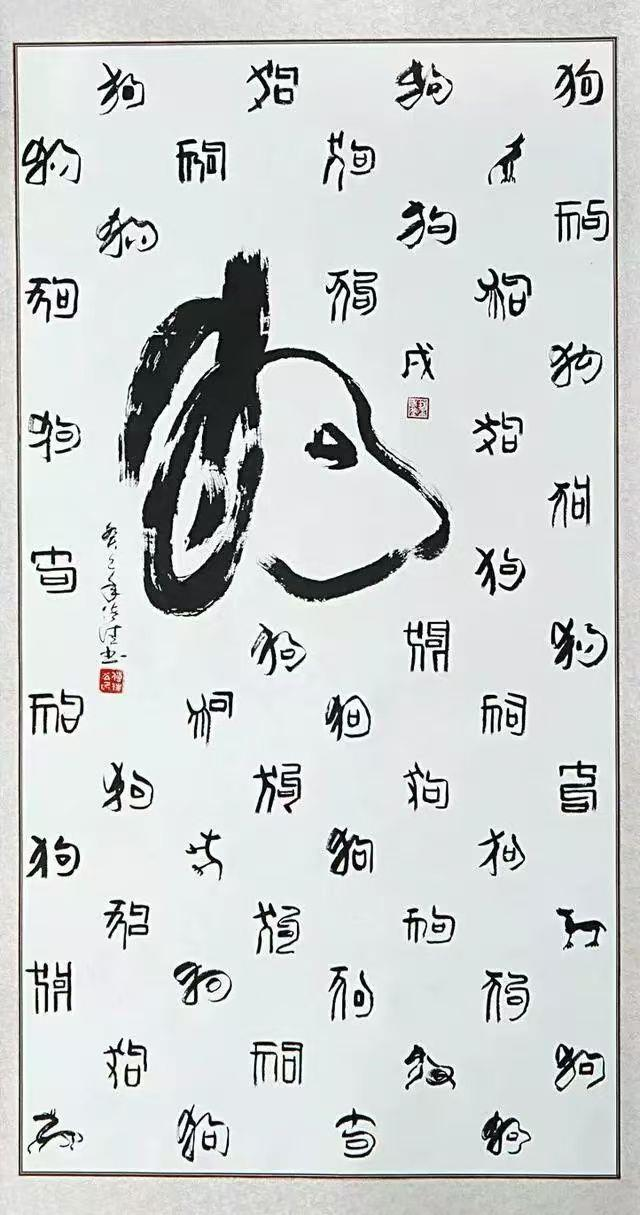 狗 狗 狗 狗
狗 狗 狗
狗 狗 狗
狗 狗 狗
戌 狗
狗 狗
狗
狗 狗
癸巳年 书
狗 狗 狗
狗 狗 狗 狗
狗 狗 狗 狗
狗 狗 狗
狗 狗 狗
狗 狗 狗 狗
狗 狗 狗 狗
狗 狗 狗